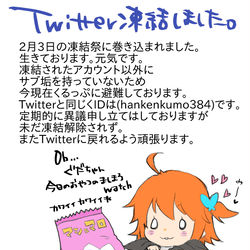 Twitter凍結しました。
2月3日の凍結祭に巻き込まれました。
生きております。元気です。
凍結されたアカウント以外に
サブ垢を持っていないため
今現在くるっぷに避難しております。
Twitterと同じくIDは(hankenkumo384)です。
定期的に異議申し立てはしておりますが
未だ凍結解除されず。
またTwitterに戻れるよう頑張ります。
Oh...
ぐだちゃん
今日のおやつのましまろ
watch
カワイイ カワイイネ
マシマロ